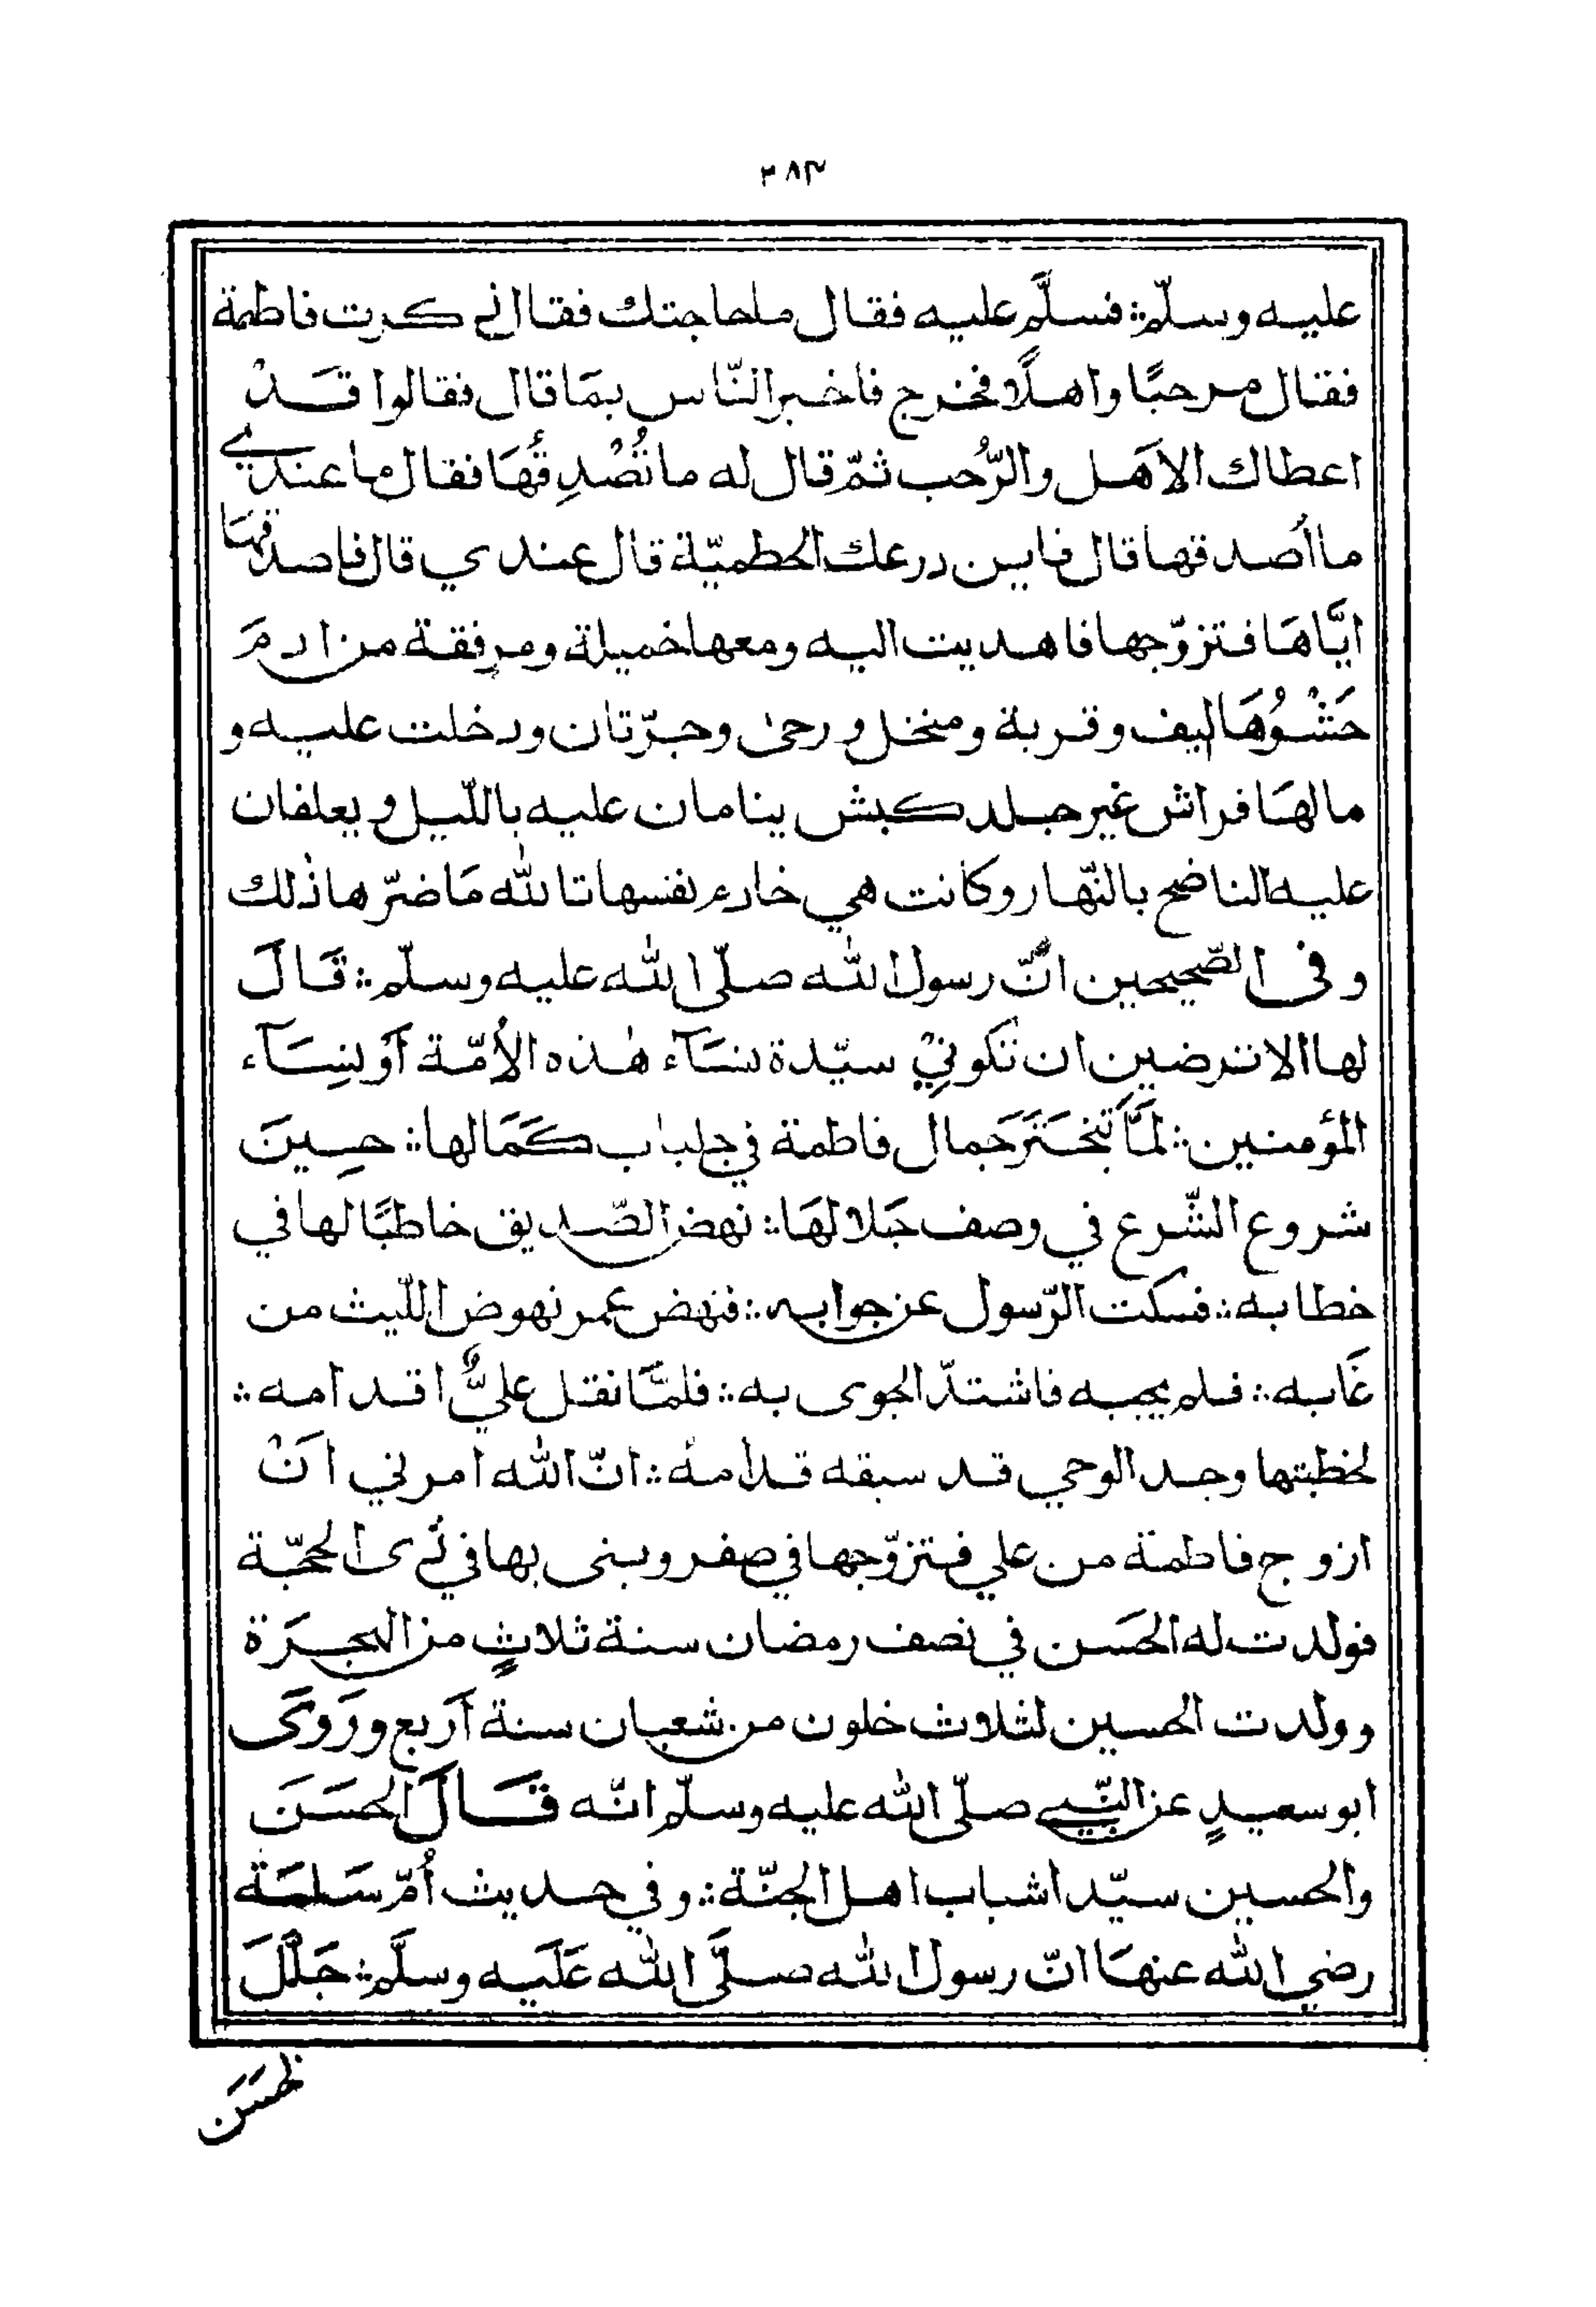 ٣٨٣
عليه وسلّم؞ فسلَّم عليه فقال ما حاجتك فقال ذكرت فاطمة
فقال مرحبًا واهلًا فخرج فاخبر النّاس بمَا قال فقالوا قَدْ
اعطاك الاَهل والرُّحب ثمّ قال له ما تُصْدِقُهَا فقال ما عندي
ما اُصدقها قال فاين درعك الحطميّة قال عندي قال فاصدقهَا
ايَّاهَا فتزوّجها فاهديت اليه ومعها خميلة ومرفقة من ادمَ
حَشْوُهَا ليف وقربة ومنخل ورحىٰ وجرّتان ودخلت عليه و
ما لهَا فراش غير جلد كبش ينامان عليه باللّيل ويعلفان
عليه الناضح بالنّهار وكانت هي خادم نفسها تاللّٰه مَا ضرّها ذٰلك
وفى الصّحيحين انّ رسول اللّٰه صلّى اللّٰه عليه وسلّم؞ قَالَ
لها الا ترضين ان تكونيْ سيّدة نسَآء هٰذه الأُمّة اَوْ نسِآء
المؤمنين؞ لمَّا تبختَرَ جَمال فاطمة في جلباب كَمَالها؞ حِينَ
شروع الشّرع في وصف جَلالهَا؞ نهض الصّديق خاطبًا لها في
خطابه؞ فسكت الرّسول عن جوابه؞ فنهض عمر نهوض اللّيث من
غَابه؞ فلم يجبه فاشتدّ الجوى به؞ فلمّا نقل عليٌّ اقدامه؞
لخطبتها وجد الوحي قد سبقه قدّامهُ؞ انّ الله امرني انْ
ازوج فاطمة من علي فتزوّجها في صفر وبنى بها في ذى الحجّة
فولدت له الحَسن في نصف رمضان سنة ثلاثٍ من الهجرَة
وولدت الحسين لثلاث خلون من شعبان سنة اَربع ورَوَىٰ
ابو سعيدٍ عن النّبي صلّى اللّٰه عليه وسلّم انّه قَالَ الحسَنَ
والحسين سيّدا شباب اهل الجنّة؞ وفي حديث اُمّ سَلمَة
رضي اللّٰه عنهَا انّ رسول اللّٰه صلَّى اللّٰه عَلَيه وسلَّم؞ جَلَّلَ
الحَسَن